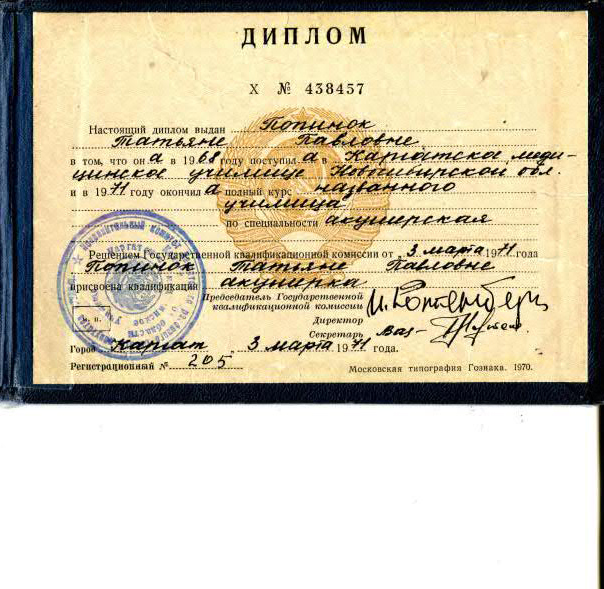 ДИПЛОМ
X № 438457
Настоящий диплом выдан Попинок
Татьяне Павловне
в том, что он а в 1968 году поступил а в Каргатское меди-
цинское училище Новосибирской обл.
и в 1971 году окончил а полный курс названного
училища
по специальности акушерская
Решением Государственной квалификационной комиссии от 3 марта 1971 года
Попинок Татьяне Павловне
присвоена квалификация акушерка
Председатель Государственной
квалификационной комиссии
Директор
Секретарь
Город Каргат 3 марта 1971 года.
Регистрационный № 205
Московская типография Гознака. 1970.